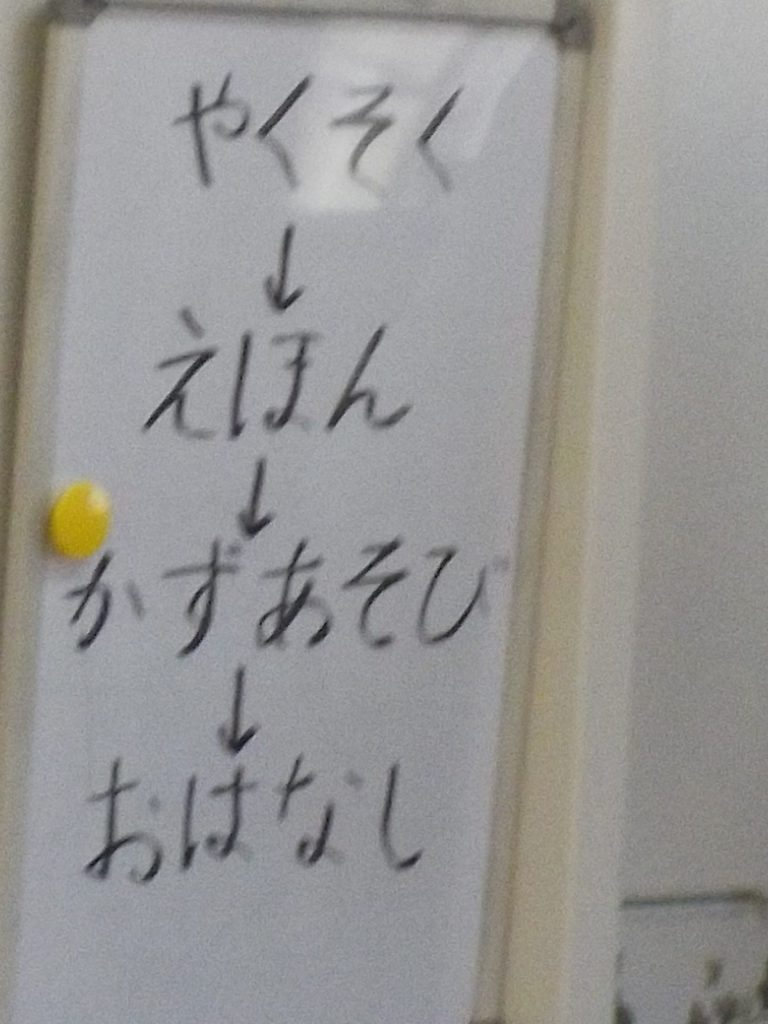 やくそく
↓
えほん
↓
かずあそび
↓
おはなし